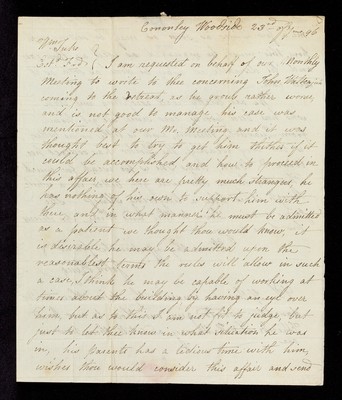 Cononley Woodside 23rd 96
Wm Tuke
Estd Fd I am requested on behalf of our Monthly
Meeting to write to thee concerning John
coming to the Retreat, as he grows rather worse,
and is not good to manage, his case was
mentioned at our Mo. Meeting and it was
thought best to try to get him thither if it
could be accomplished, and how to proceed in
this affair we here are pretty much strangers, he
has nothing of his own to support him with
there, and in what manner he must be admitted
as a patient we thought thou would know, it
is desirable he may be admitted upon the
reasonablest terms the rules will allow in such
a case, I think he may be capable of working at
times about the building by having an eye over
him, but as to this I am not fit to judge, but
just to let thee know in what Situation he was
in, his parents has a tedious time with him,
wishes thou would consider this affair and send